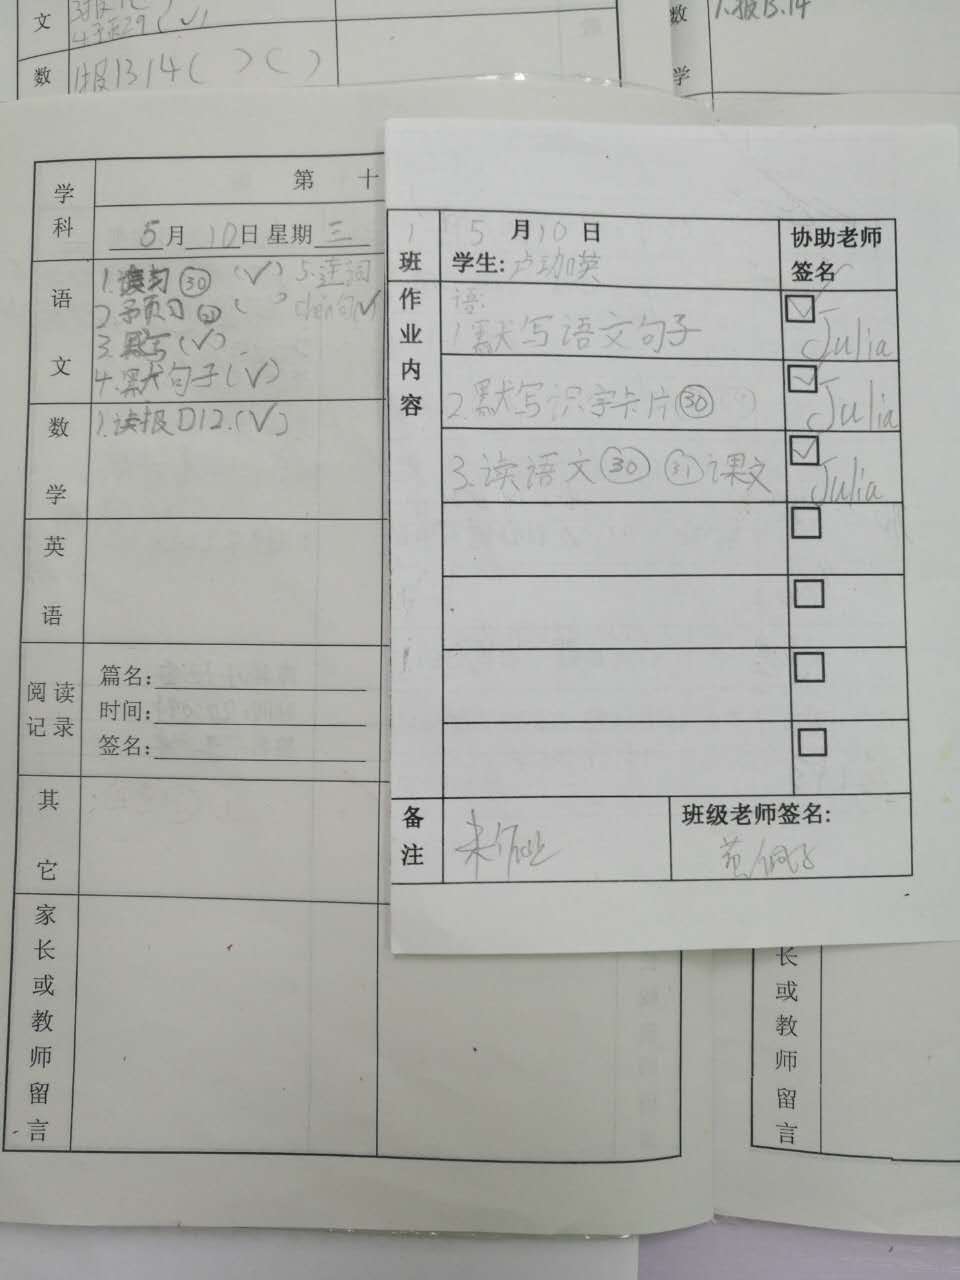 文
4.
数
1报1314( )( )
数
学
1.报13.14
学科
第 十
5月10日 星期三
语文
1.读习㉚(√) 5.连词
2.予页习 ( ) 成句√
3.默写(√)
4.默句子(√)
数学
1.读报D12.(√)
英语
阅读记录
篇名:
时间:
签名:
其它
家长或教师留言
1班
5月10日
学生:
协助老师签名
作业内容
语:
1.默写语文句子
Julia
2.默写识字卡片㉚
Julia
3.读语文㉚ ㉛课文
Julia
备注
未作业
班级老师签名:
长或教师留言